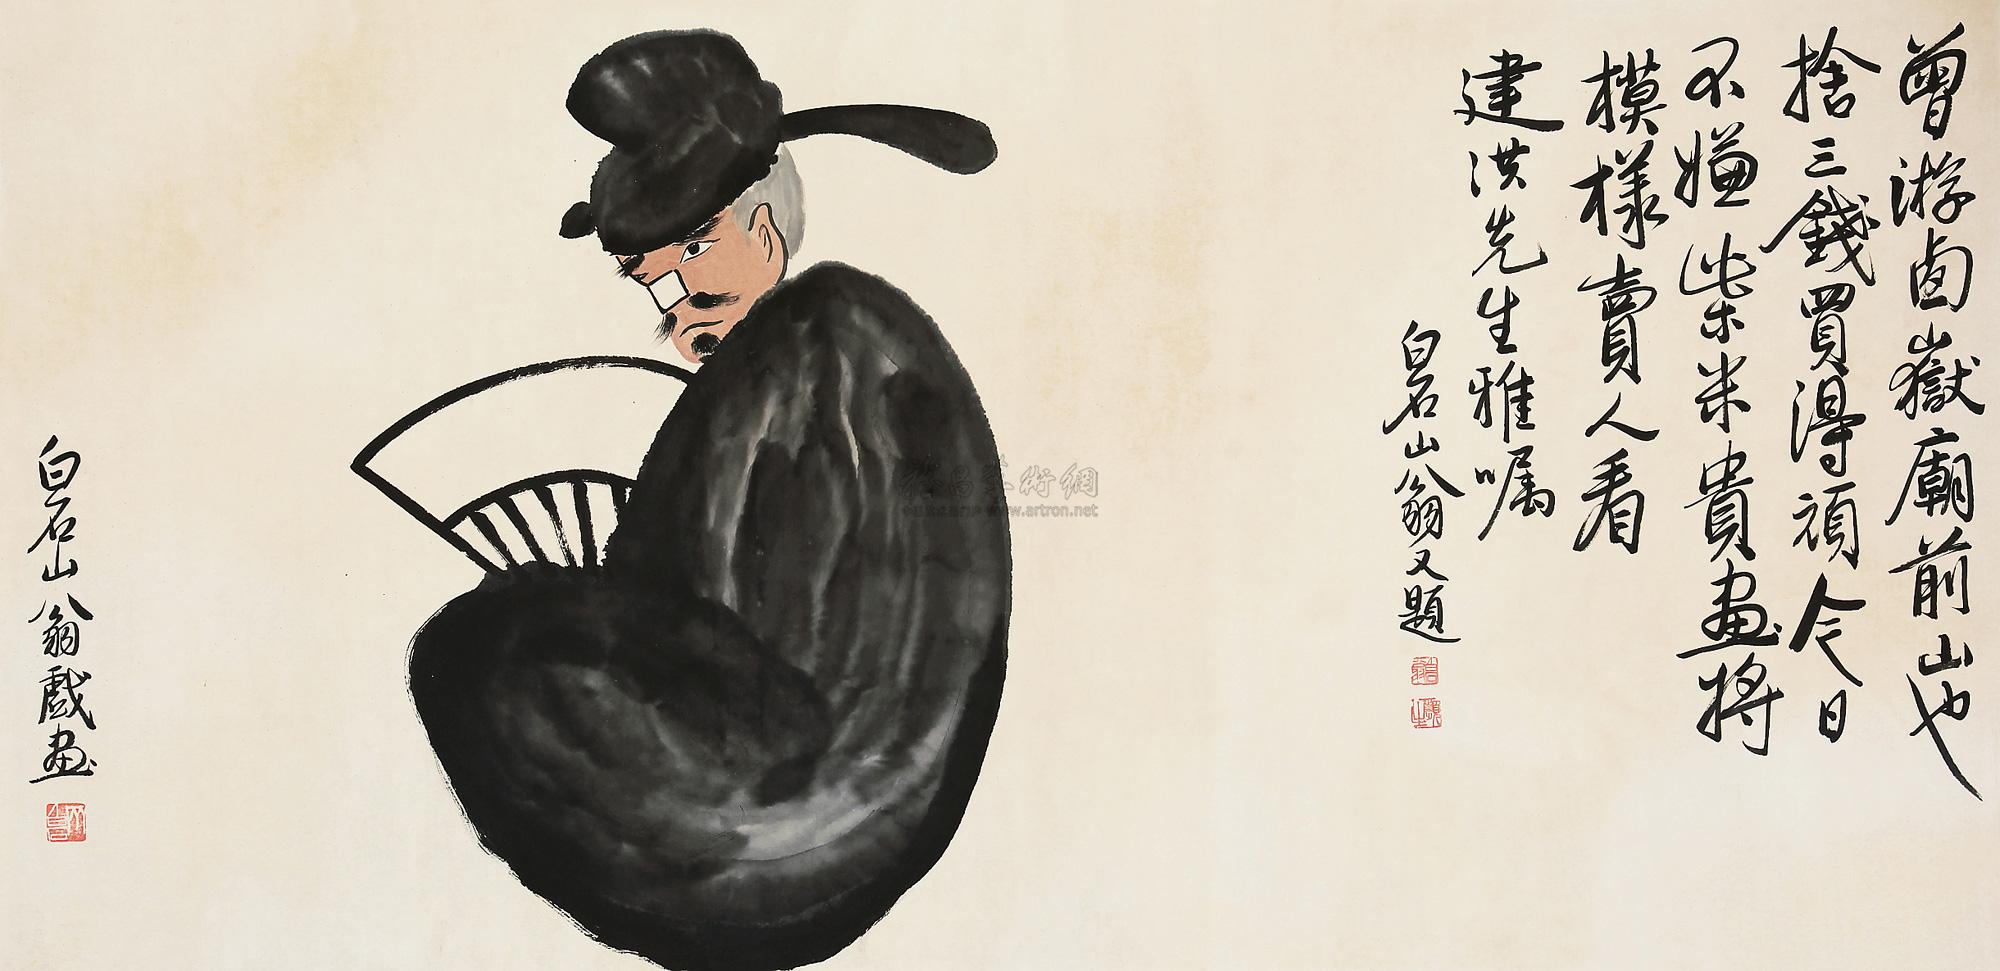 曾游南嶽廟前山也
捨三錢買得頑今日
不嫌柴米貴畫將
模樣賣人看
建洪先生雅嘱
白石山翁又題
白石山翁戲畫
www.artron.net